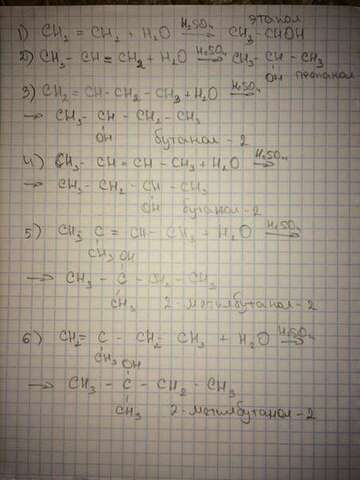 этанол
1) CH₂ = CH₂ + H₂O —H₂SO₄→ CH₃ - CHOH
2) CH₃ - CH = CH₂ + H₂O —H₂SO₄→ CH₃ - CH - CH₃
OH пропанол
3) CH₂ = CH - CH₂ - CH₃ + H₂O —H₂SO₄→
→ CH₃ - CH - CH₂ - CH₃
OH бутанол - 2
4) CH₃ - CH = CH - CH₃ + H₂O —H₂SO₄→
→ CH₃ - CH₂ - CH - CH₃
OH бутанол - 2
5) CH₃ C = CH - CH₃ + H₂O —H₂SO₄→
CH₃ OH
→ CH₃ - C - CH₂ - CH₃
CH₃ 2 - метилбутанол - 2
6) CH₂ = C - CH₂ - CH₃ + H₂O —H₂SO₄→
CH₃ OH
→ CH₃ - C - CH₂ - CH₃
CH₃ 2 - метилбутанол - 2